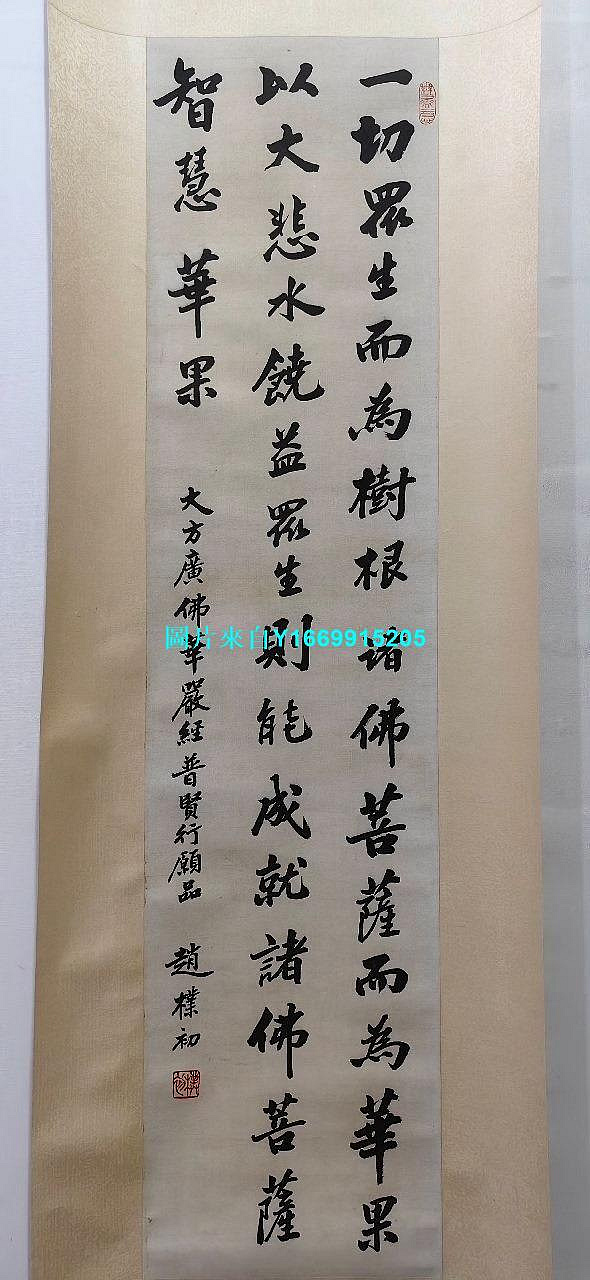 一切眾生而為樹根諸佛菩薩而為華果
以大悲水饒益眾生則能成就諸佛菩薩
智慧華果
大方廣佛華嚴經普賢行願品 趙樸初
圖片來自Y1669915205